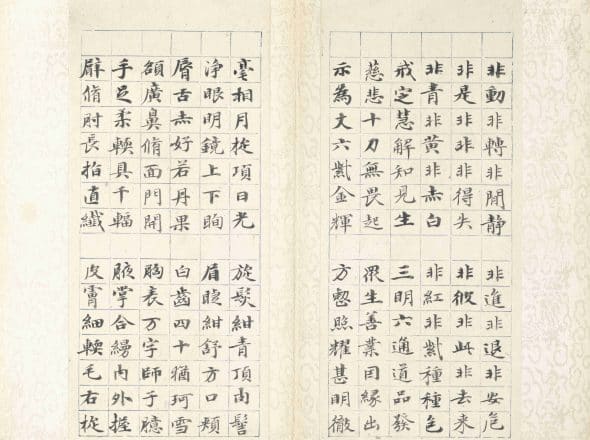 非動非轉非閒靜 非進非退非安危
非是非非非得失 非彼非此非去來
非青非黃非赤白 非紅非紫種種色
戒定慧解知見生 三明六通道品發
慈悲十力無畏起 眾生善業因緣出
示為丈六紫金輝 方整照耀甚明徹
毫相月旋項日光 旋髮紺青頂肉髻
淨眼明鏡上下眴 眉睫紺舒方口頰
脣舌赤好若丹果 白齒四十猶珂雪
額廣鼻脩面門開 胸表万字師子臆
手足柔輭具千輻 腋掌合縵內外握
臂脩肘長指直纖 皮膚細輭毛右旋